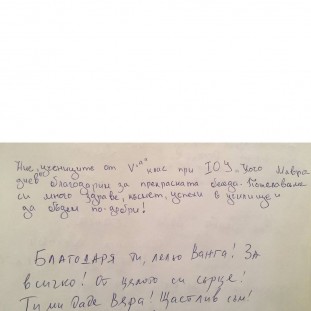 Ние, учениците от V клас при IОУ
благодарим за прекрасната беседа. Пожелаваме
си много здраве, късмет, успехи в училище и
да бъдем по-добри!
Благодаря ти, лельо Ванга! За
всичко! От цялото си сърце!
Ти ми даде Вяра! Щастлив съм!